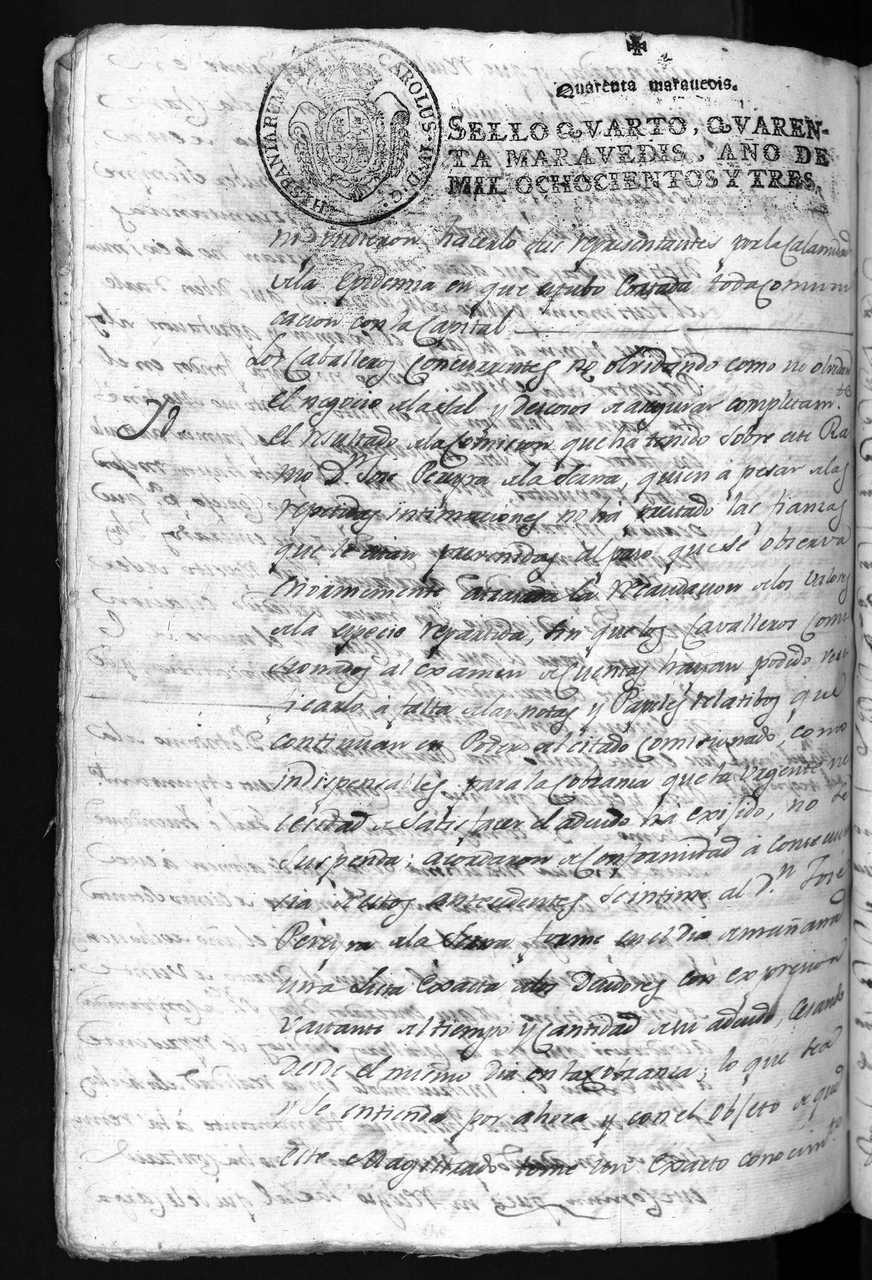 Quarenta maravedis.
HISPANIARUM REX CAROLUS·IV·D·G·
SELLO QVARTO, QVAREN-
TA MARAVEDIS, AÑO DE
MIL OCHOCIENTOS Y TRES.
no pudieron hacerlo sus representantes por la Calamidad
de la Epidemia en que estubo Cortada toda comuni
cacion con la Capital
Los Caballeros Concurrentes no olvidando como no olvidan
el negocio de la Sal y Deseosos de asegurar completamte
el resultado de la Comicion que ha tenido sobre este Ra
mo Dn Jose Pereyra de la Serna, quien á pesar de las
repetidas intimaciones no ha prestado las fianzas
que le estan prevenidas al paso que se observa
enormemente atrasada la recaudacion de los valores
de la especie repartida, sin que los Cavalleros Comi
sionados al examen de Cuentas hayan podido veri
ficarlo á falta de las notas y Papeles relatibos que
continuan en Poder del citado Comisionado, como
indispensables para la Cobranza que la Urgente ne
cesidad de Satisfacer el adeudo ha exijido, no se
Suspenda; acordaron de Conformidad á consequen
cia de estos antecedentes se intime al Dn Jose
Pereyra de la Serna forme en el dia de mañana
una Lista Exacta de los Deudores con expresion
vastante del tiempo y Cantidad de su adeudo, Cesando
desde el mismo Dia en la Cobranza; lo que sea
y se entienda por ahora y con el Objeto de que
este Magistrado tome un Exacto conocimto